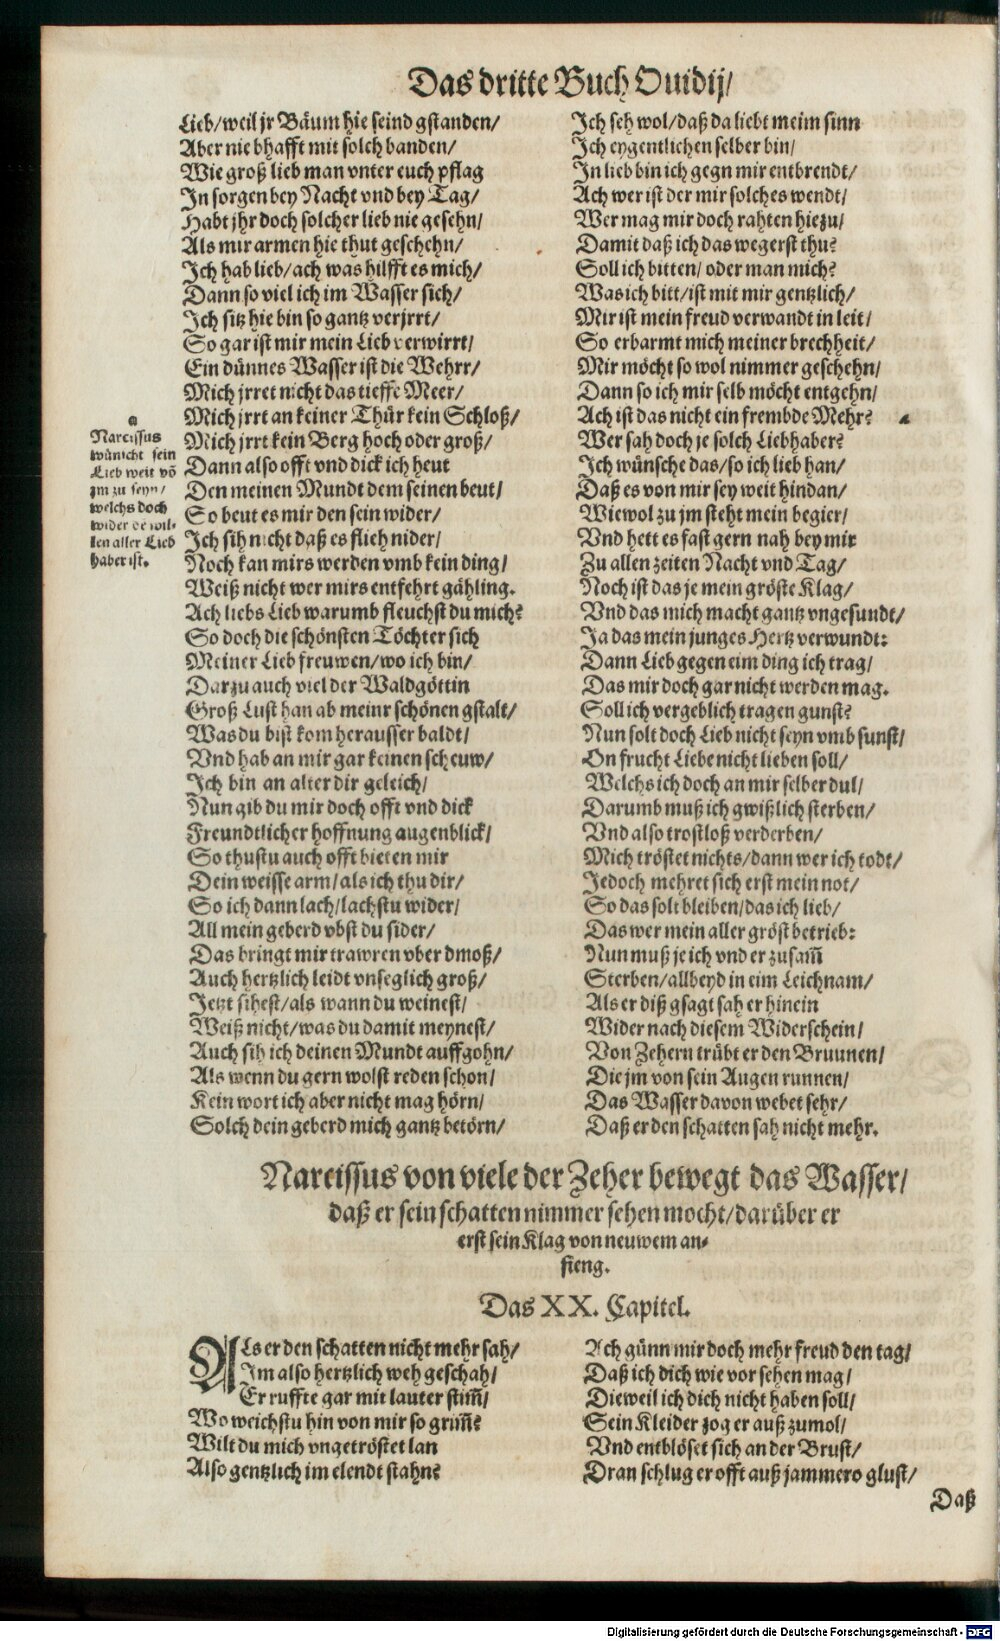 Das dritte Buch Ouidij/
Lieb/weil jr Bäum hie seind gstanden/
Aber nie bhafft mit solch banden/
Wie groß lieb man vnter euch pflag
In sorgen bey Nacht vnd bey Tag/
Habt jhr doch solcher lieb nie gesehn/
Als mir armen hie thut geschehn/
Ich hab lieb/ach was hilfft es mich/
Dann so viel ich im Wasser sich/
Ich sitz hie bin so gantz verjrrt/
So gar ist mir mein Lieb verwirrt/
Ein dünnes Wasser ist die Wehrr/
Mich jrret nicht das tieffe Meer/
Mich jrrt an keiner Thür kein Schloß/
Mich jrrt kein Berg hoch oder groß/
Dann also offt vnd dick ich heut
Den meinen Mundt dem seinen beut/
So beut es mir den sein wider/
Ich sih nicht daß es flieh nider/
Noch kan mirs werden vmb kein ding/
Weiß nicht wer mirs entfehrt gähling.
Ach liebs Lieb warumb fleuchst du mich?
So doch die schönsten Töchter sich
Meiner Lieb freuwen/wo ich bin/
Darzu auch viel der Waldgöttin
Groß Lust han ab meinr schönen gstalt/
Was du bist kom herausser baldt/
Vnd hab an mir gar keinen scheuw/
Ich bin an alter dir geleich/
Nun gib du mir doch offt vnd dick
Freundtlicher hoffnung augenblick/
So thustu auch offt bieten mir
Dein weisse arm/als ich thu dir/
So ich dann lach/lachstu wider/
All mein geberd vbst du sider/
Das bringt mir trawren vber dmoß/
Auch hertzlich leidt vnseglich groß/
Jetzt sihest/als wann du weinest/
Weiß nicht/was du damit meynest/
Auch sih ich deinen Mundt auffgohn/
Als wenn du gern wolst reden schon/
Kein wort ich aber nicht mag hörn/
Solch dein geberd mich gantz betörn/
a
Narcissus
wünscht sein
Lieb weit võ
jm zu seyn/
welchs doch
wider de wil-
len aller Lieb
haber ist.
Ich seh wol/daß da liebt meim sinn
Ich eygentlichen selber bin/
In lieb bin ich gegn mir entbrendt/
Ach wer ist der mir solches wendt/
Wer mag mir doch rahten hiezu/
Damit daß ich das wegerst thu?
Soll ich bitten/oder man mich?
Was ich bitt/ist mit mir gentzlich/
Mir ist mein freud verwandt in leit/
So erbarmt mich meiner brechheit/
Mir möcht so wol nimmer geschehn/
Dann so ich mir selb möcht entgehn/
Ach ist das nicht ein frembde Mehr? a
Wer sah doch je solch Liebhaber?
Ich wünsche das/so ich lieb han/
Daß es von mir sey weit hindan/
Wiewol zu jm steht mein begier/
Vnd hett es fast gern nah bey mir
Zu allen zeiten Nacht vnd Tag/
Noch ist das je mein gröste Klag/
Vnd das mich macht gantz vngesundt/
Ja das mein junges Hertz verwundt:
Dann Lieb gegen eim ding ich trag/
Das mir doch gar nicht werden mag.
Soll ich vergeblich tragen gunst?
Nun solt doch Lieb nicht seyn vmb sunst/
On frucht Liebe nicht lieben soll/
Welchs ich doch an mir selber dul/
Darumb muß ich gwißlich sterben/
Vnd also trostloß verderben/
Mich tröstet nichts/dann wer ich todt/
Jedoch mehret sich erst mein not/
So das solt bleiben/das ich lieb/
Das wer mein aller gröst betrieb:
Nun muß je ich vnd er zusam̃
Sterben/allbeyd in eim Leichnam/
Als er diß gsagt sah er hinein
Wider nach diesem Widerschein/
Von Zehern trübt er den Bruunen/
Die jm von sein Augen runnen/
Das Wasser davon webet sehr/
Daß er den schatten sah nicht mehr.
Narcissus von viele der Zeher bewegt das Wasser/
daß er sein schatten nimmer sehen mocht/darüber er
erst sein Klag von neuwem an-
fieng.
Das XX. Capitel.
ALs er den schatten nicht mehr sah/
Im also hertzlich weh geschah/
Er ruffte gar mit lauter stim̃/
Wo weichstu hin von mir so grim̃?
Wilt du mich vngetröstet lan
Also gentzlich im elendt stahn?
Ach günn mir doch mehr freud den tag/
Daß ich dich wie vor sehen mag/
Dieweil ich dich nicht haben soll/
Sein Kleider zog er auß zumol/
Vnd entblöset sich an der Brust/
Dran schlug er offt auß jammers glust/
Daß
Digitalisierung gefördert durch die Deutsche Forschungsgemeinschaft - DFG